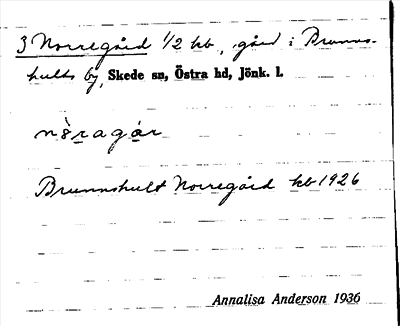 3 Norregård 1/2 kb, gård i Brunns-
hults by, Skede sn, Östra hd, Jönk. l.
nǒ̀ragár
Brunnshult Norregård kb 1926
Annalisa Anderson 1936